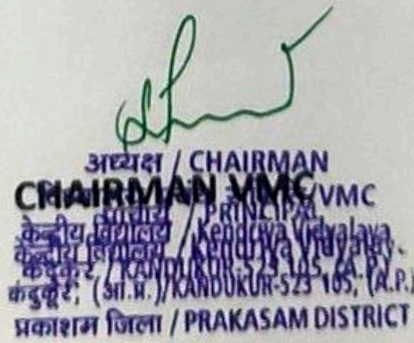 अध्यक्ष / CHAIRMAN
CHAIRMAN VMC /VMC
प्राचार्य / PRINCIPAL
केन्द्रीय विद्यालय / Kendriya Vidyalaya
कंदुकूर / KANDUKUR-523 105, (A.P.)
कंदुकूर, (आं.प्र.)/KANDUKUR-523 105, (A.P.)
प्रकाशम जिला / PRAKASAM DISTRICT